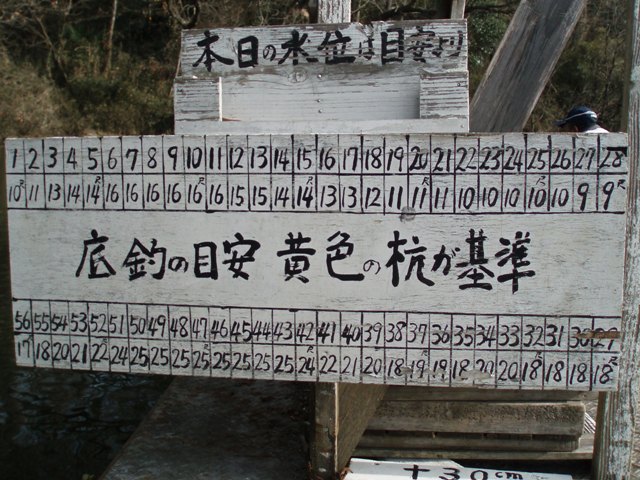 本日の水位は目安より
1 2 3 4 5 6 7 8 9 10 11 12 13 14 15 16 17 18 19 20 21 22 23 24 25 26 27 28
10尺 11 13 14 14尺 16 16 16 16 16尺 16 15 15 14 14尺 13 13 12 11 11尺 11 10 10 10 10尺 10 9 9尺
底釣の目安 黄色の杭が基準
56 55 54 53 52 51 50 49 48 47 46 45 44 43 42 41 40 39 38 37 36 35 34 33 32 31 30 29
17尺 18 20 21 22尺 24 25 25 25 25尺 25 25 25 25 24尺 22 21 20 18 19尺 19 18 20 20 18尺 18 18 18尺
+30cm